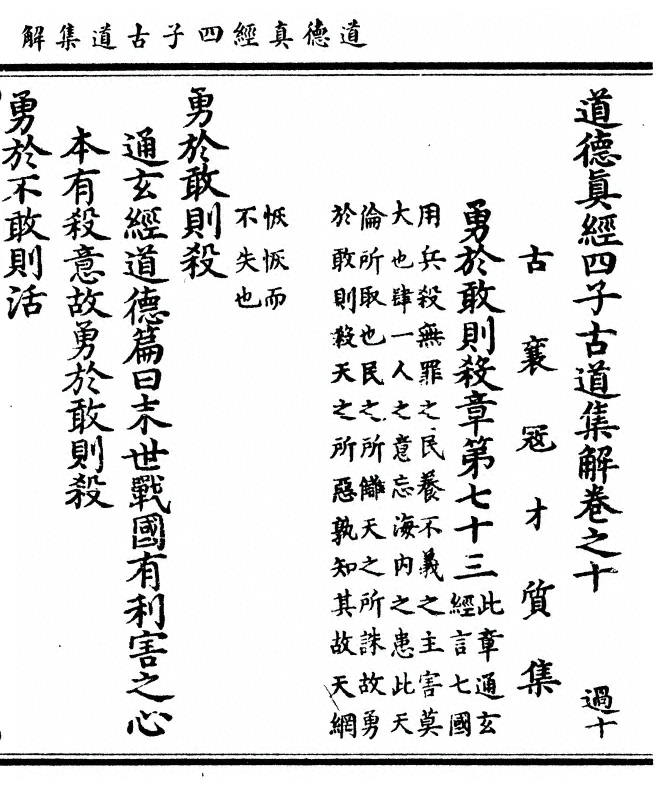 道德真經四子古道集解
道德眞經四子古道集解卷之十
過十
古襄冦才質集
勇於敢則殺章第七十三
此章通玄
經言七國
用兵殺無罪之民養不義之主害莫
大也肆一人之意忘海内之患此天
倫所取也民之所讎天之所誅故勇
於敢則殺天之所惡孰知其故天網
恢恢而
不失也
勇於敢則殺
通玄經道德篇曰末世戰國有利害之心
本有殺意故勇於敢則殺
勇於不敢則活